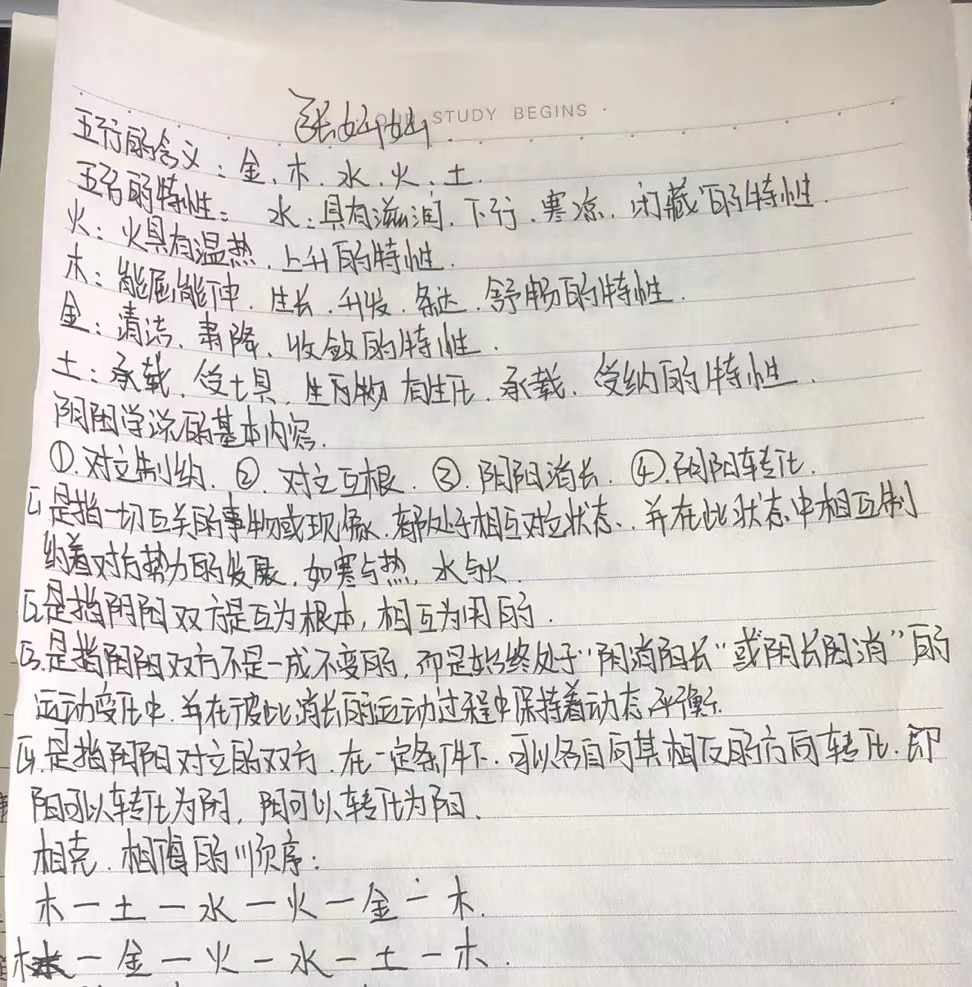 OUR STUDY BEGINS
张灿灿
五行的含义：金、木、水、火、土.
五名的特性：水：具有滋润、下行、寒凉、闭藏的特性.
火：火具有温热、上升的特性.
木：能屈能伸、生长、升发、条达、舒畅的特性.
金：清洁、肃降、收敛的特性.
土：承载、生万物 有生化、承载、受纳的特性.
阴阳学说的基本内容.
①.对立制约. ②.对立互根. ③.阴阳消长. ④.阴阳转化.
1.是指一切互关的事物或现像、都处于相互对立状态、并在此状态中相互制
约着对方势力的发展、如寒与热、水与火.
2.是指阴阳双方是互为根本，相互为用的.
3.是指阴阳双方不是一成不变的，而是始终处于“阴消阳长”或阴长阳消”的
运动变化中.并在彼此消长的运动过程中保持着动态平衡.
4.是指阴阳对立的双方、在一定条件下、可以各自向其相反的方向转化.即
阳可以转化为阴，阴可以转化为阳.
相克、相侮的顺序：
木一土一水一火一金一木.
木一金一火一水一土一木.